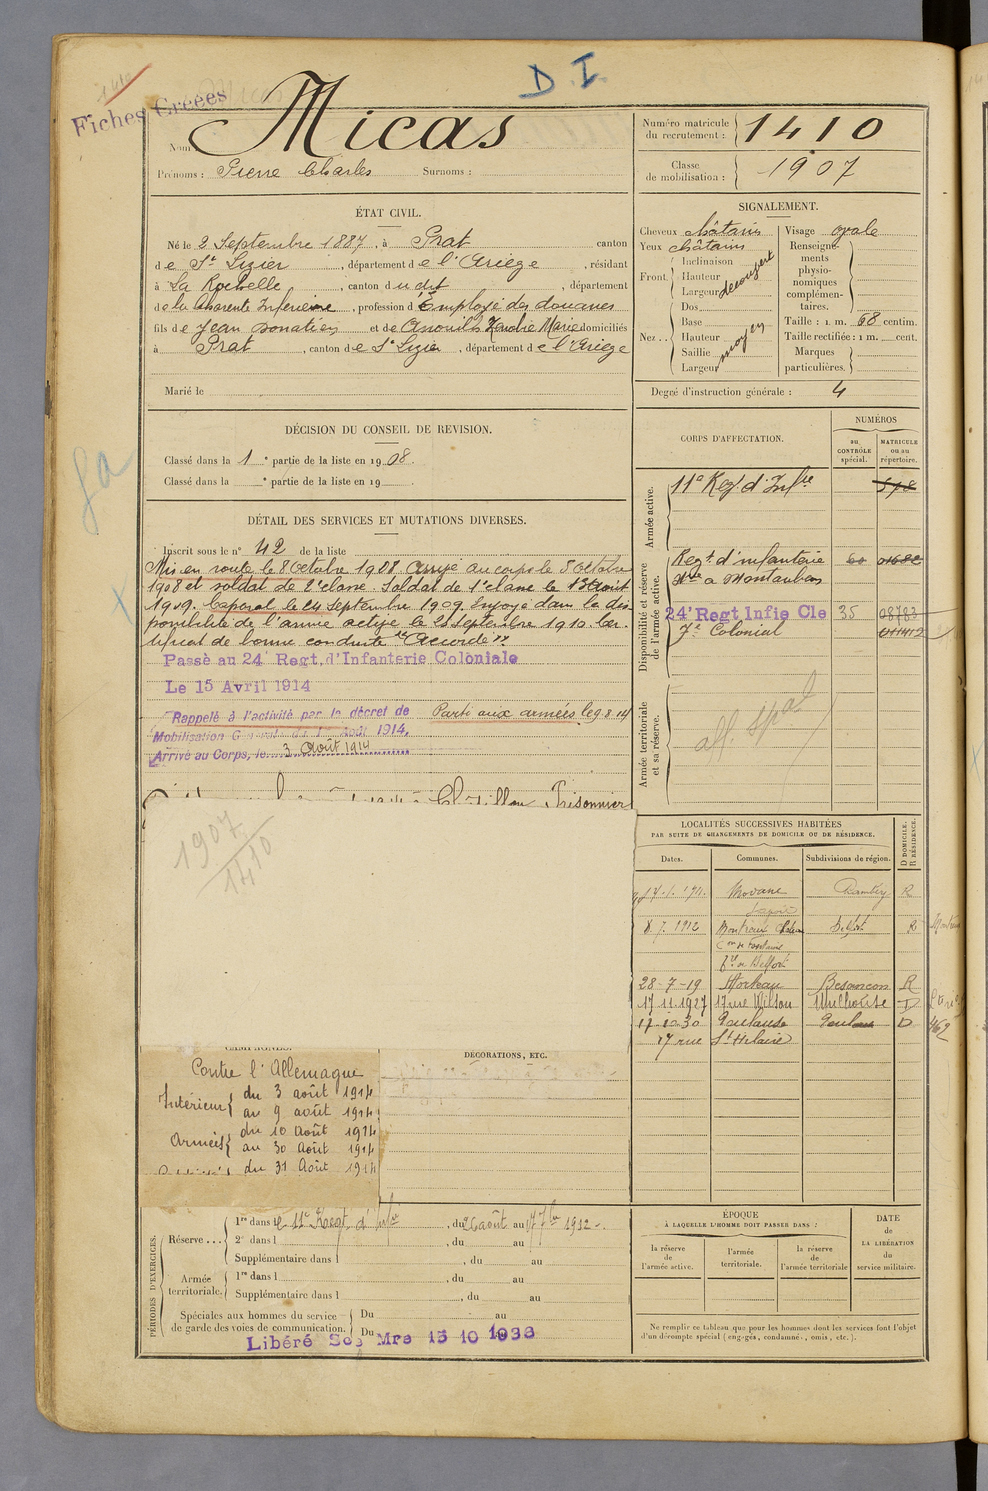 D. I.
Fiches Créées
Nom
Micas
Prénoms : Pierre Charles Surnoms :
Numéro matricule
du recrutement :
1410
Classe
de mobilisation :
1907
ÉTAT CIVIL.
Né le 2 Septembre 1887, à Prat canton
de St Lizier, département de l'Ariège, résidant
à La Rochelle, canton dudit, département
de la Charente Inférieure, profession d'Employé des douanes
fils de Jean Donatien et de Marie domiciliés
à Prat, canton de St Lizier, département de l'Ariège
Marié le
SIGNALEMENT.
Cheveux châtains
Yeux châtains
Front
Inclinaison
Hauteur
Largeur
découvert
Nez
Dos
Base
Hauteur
Saillie
Largeur
moyen
Visage ovale
Renseigne-
ments
physio-
nomiques
complémen-
taires.
Taille : 1 m. 68 centim.
Taille rectifiée : 1 m. cent.
Marques
particulières.
Degré d'instruction générale : 4
DÉCISION DU CONSEIL DE REVISION.
Classé dans la 1e partie de la liste en 1908.
Classé dans la e partie de la liste en 19
DÉTAIL DES SERVICES ET MUTATIONS DIVERSES.
Inscrit sous le n° 42 de la liste
Mis en route le 8 Octobre 1908 Arrivé au corps le 8 octobre
1908 et soldat de 2e classe. Soldat de 1e classe le 13 Août
1909. Caporal le 24 Septembre 1909. Envoyé dans la dis
ponibilité de l'armée active le 25 Septembre 1910. Cer-
tificat de bonne conduite "Accordé"
Passé au 24 Regt. d'Infanterie Coloniale
Le 15 Avril 1914
Rappelé à l'activité par le décret de
Mobilisation Générale du 1er Août 1914.
Arrivé au Corps, le 3 Août 1914
Parti aux armées le 9 8 14
Prisonnier
CORPS D'AFFECTATION.
NUMÉROS
au
CONTRÔLE
spécial.
MATRICULE
ou au
répertoire.
Armée active.
11e Reg. d'Infie
578
Disponibilité et réserve
de l'armée active.
Regt d'infanterie
à Montauban
60
24e Regt Infie Cle 35 08783
7e Colonial
Armée territoriale
et sa réserve.
aff. spal
1907
1410
LOCALITÉS SUCCESSIVES HABITÉES
PAR SUITE DE CHANGEMENTS DE DOMICILE OU DE RÉSIDENCE.
D DOMICILE.
R RÉSIDENCE.
Dates. Communes. Subdivisions de région.
Modane Chambéry R
8. 7. 1912 Montreux Château Belfort R
Con de Fontaine
28-7-19 Morteau Besançon R
17 11 1927 17 rue Wilson Mulhouse D
17-10-30 Toulouse D
17 rue St Hilaire
CAMPAGNES.
Contre l'Allemagne
Intérieur
du 3 août 1914
au 9 août 1914
Armées
du 10 Août 1914
au 30 Août 1914
du 31 Août 1914
DÉCORATIONS, ETC.
PÉRIODES D'EXERCICES.
Réserve ...
1re dans le 11e Regt d'Infie, du 26 août au 17 7bre 1912.
2e dans l , du au
Supplémentaire dans l , du au
Armée
territoriale.
1re dans l , du au
Supplémentaire dans l , du au
Spéciales aux hommes du service
de garde des voies de communication.
Du au
Du au
Libéré Sce Mre 15 10 1936
ÉPOQUE
À LAQUELLE L'HOMME DOIT PASSER DANS :
la réserve
de
l'armée active.
l'armée
territoriale.
la réserve
de
l'armée territoriale
DATE
de
LA LIBÉRATION
du
service militaire.
Ne remplir ce tableau que pour les hommes dont les services font l'objet
d'un décompte spécial (engagés, condamné, omis, etc.).